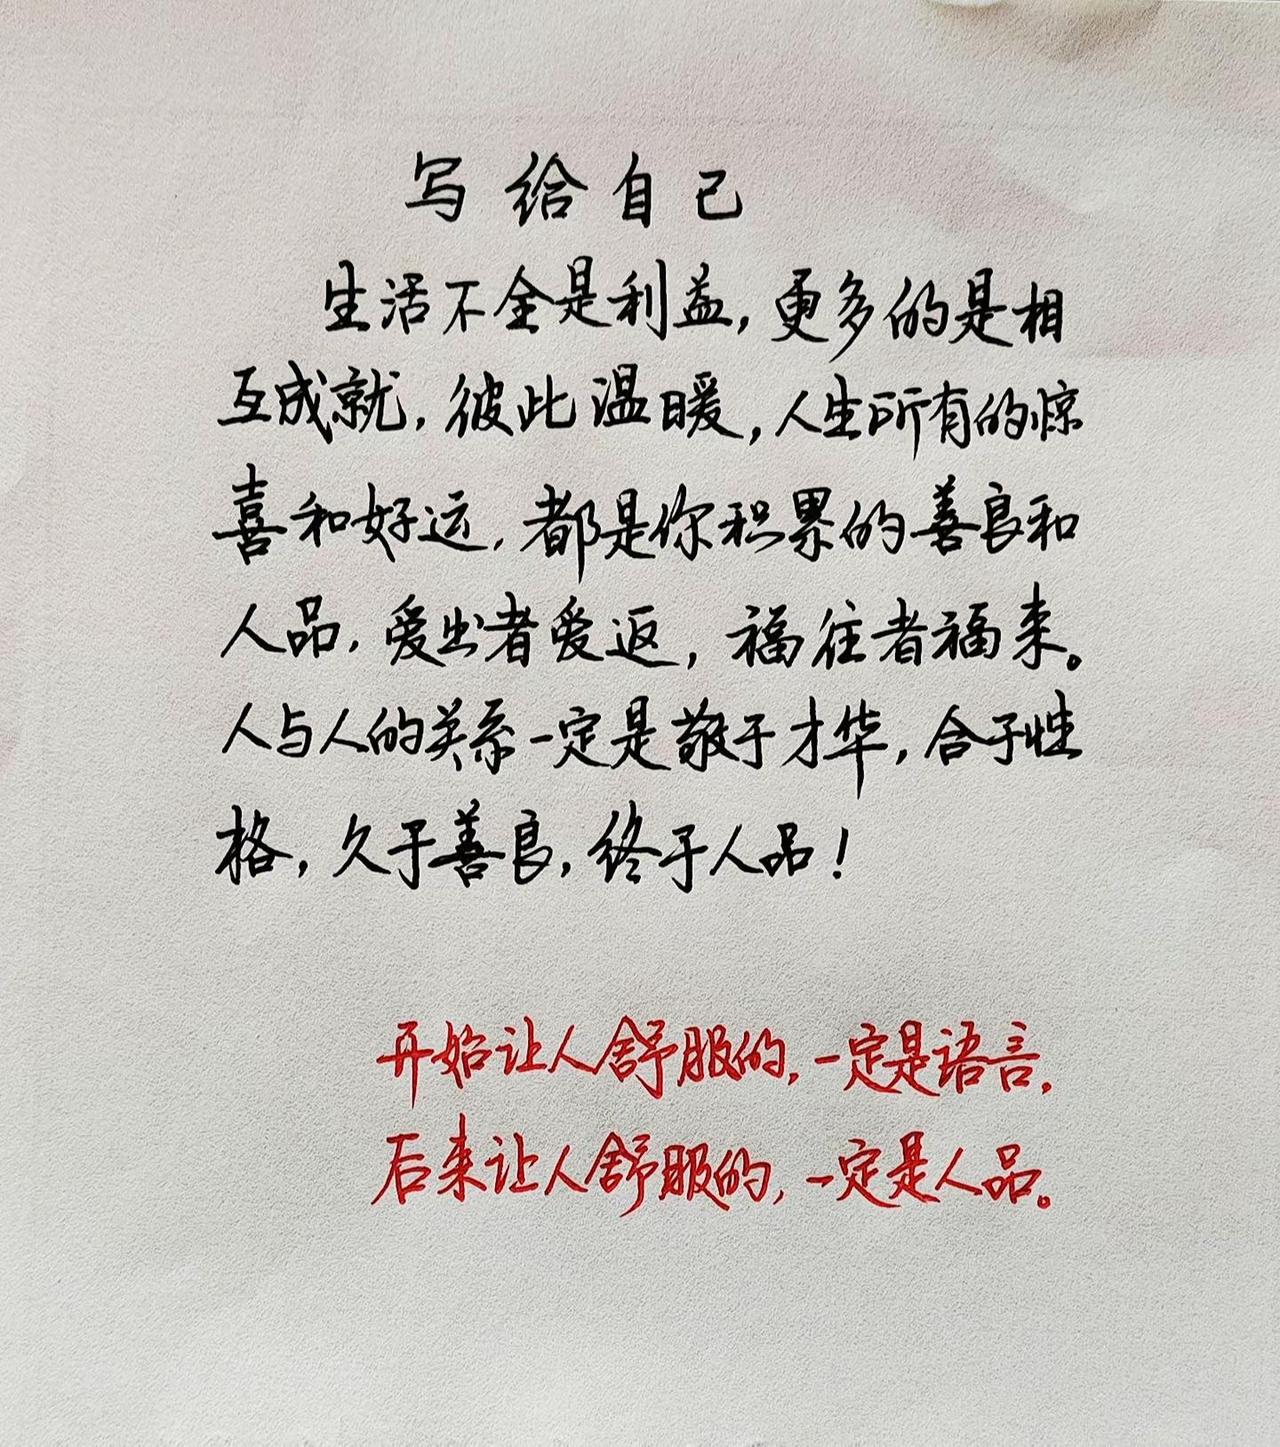 写给自己
生活不全是利益,更多的是相
互成就,彼此温暖,人生所有的惊
喜和好运,都是你积累的善良和
人品,爱出者爱返,福往者福来。
人与人的关系一定是敬于才华,合于性
格,久于善良,终于人品!
开始让人舒服的,一定是语言,
后来让人舒服的,一定是人品。